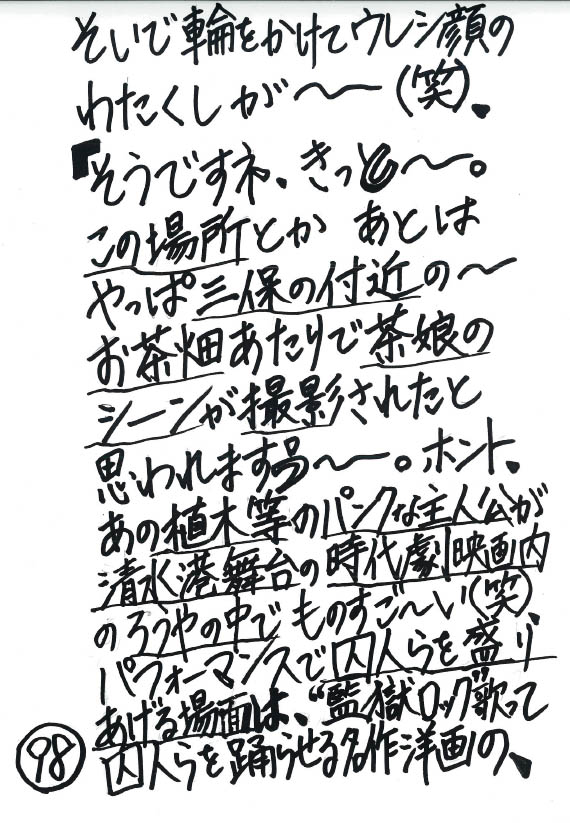 そいで輪をかけてウレシ顔の
わたくしが〜ー(笑)、
「そうですネ、きっと〜。
この場所とか あとは
やっぱ三保の付近の〜
お茶畑あたりで茶娘の
シーンが撮影されたと
思われます〜ー。ホント、
あの植木等のパンクな主人公が
清水港舞台の時代劇映画内
のろうやの中でものすご〜い(笑)、
パフォーマンスで囚人らを盛り
あげる場面は、“監獄ロック”歌って
囚人らを踊らせる名作洋画の、
98